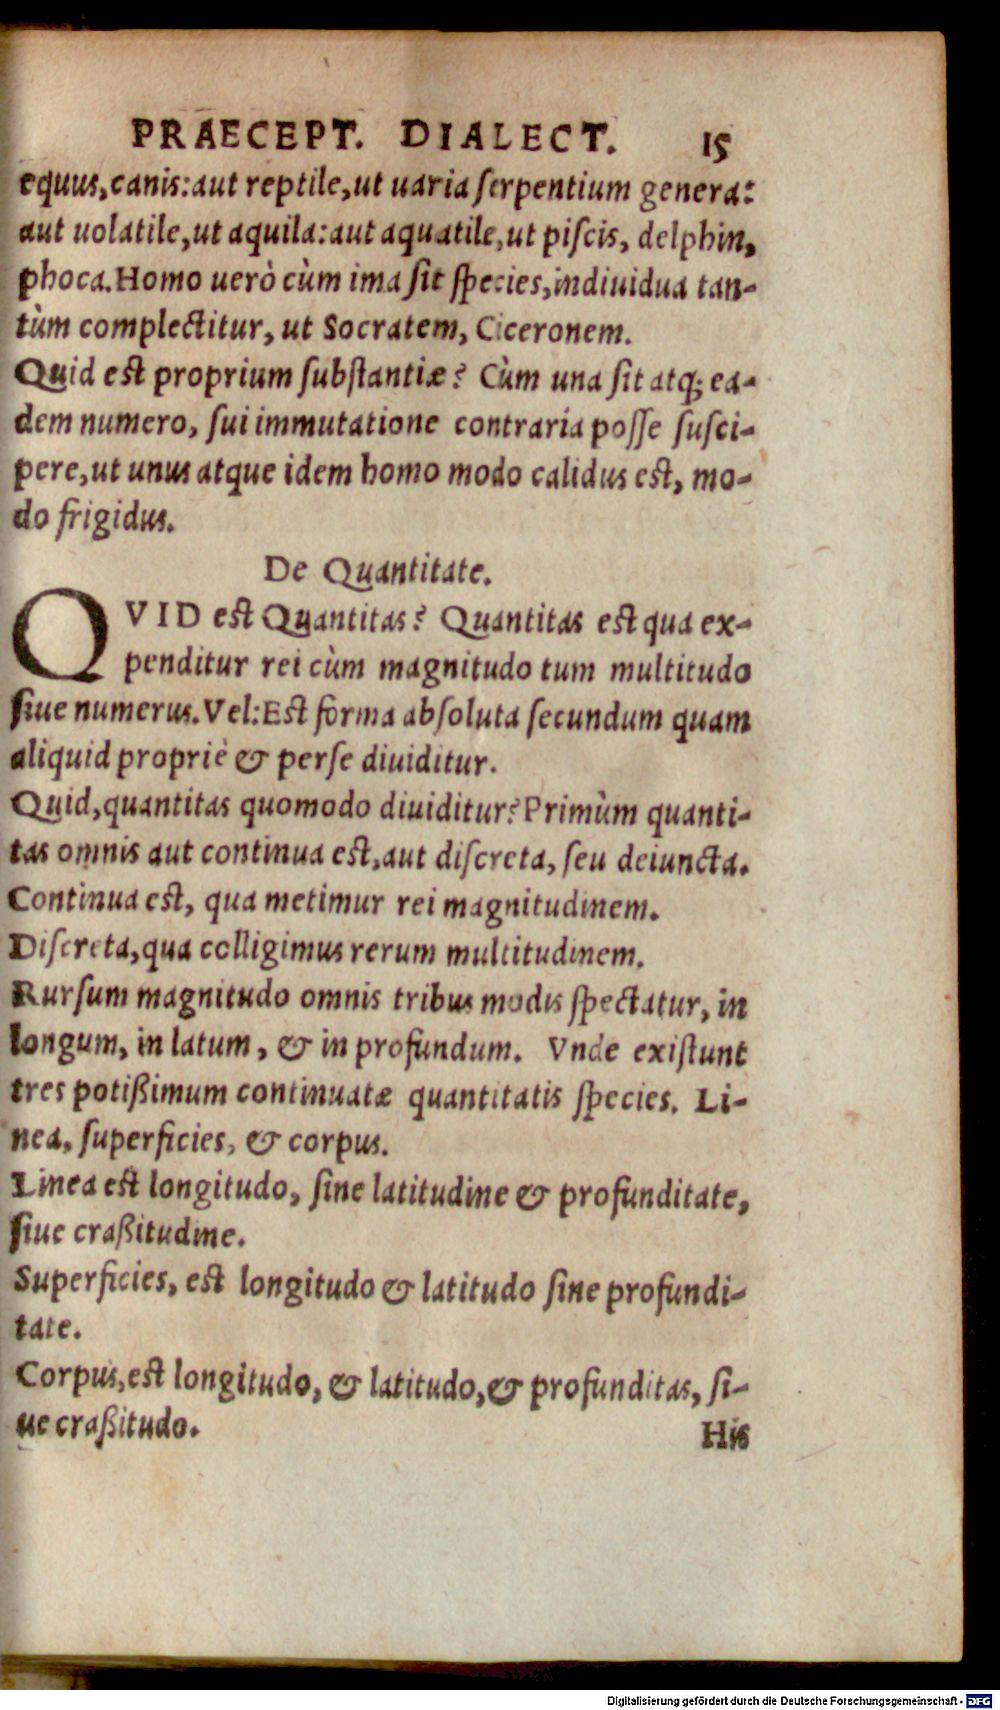 PRAECEPT. DIALECT. 15
equus,canis:aut reptile,ut uaria ſerpentium genera:
aut uolatile,ut aquila:aut aquatile,ut piſcis, delphin,
phoca.Homo uerò cùm ima ſit ſpecies,indiuidua tan-
tùm complectitur, ut Socratem, Ciceronem.
Quid est proprium ſubſtantiæ? Cùm una ſit atq; ea-
dem numero, ſui immutatione contraria poſſe ſuſci-
pere,ut unus atque idem homo modo calidus est, mo-
do frigidus.
De Quantitate.
QVID est Quantitas? Quantitas est qua ex-
penditur rei cùm magnitudo tum multitudo
ſiue numerus.Vel:Est forma abſoluta ſecundum quam
aliquid propriè & perſe diuiditur.
Quid,quantitas quomodo diuiditur?Primùm quanti-
tas omnis aut continua est,aut diſcreta, ſeu deiuncta.
Continua est, qua metimur rei magnitudinem.
Diſcreta,qua colligimus rerum multitudinem.
Rurſum magnitudo omnis tribus modis ſpectatur, in
longum, in latum, & in profundum. Vnde exiſtunt
tres potißimum continuatæ quantitatis ſpecies. Li-
nea, ſuperficies, & corpus.
Linea est longitudo, ſine latitudine & profunditate,
ſiue craßitudine.
Superficies, est longitudo & latitudo ſine profundi-
tate.
Corpus,est longitudo, & latitudo,& profunditas, ſi-
ue craßitudo.
His
Digitalisierung gefördert durch die Deutsche Forschungsgemeinschaft - DFG